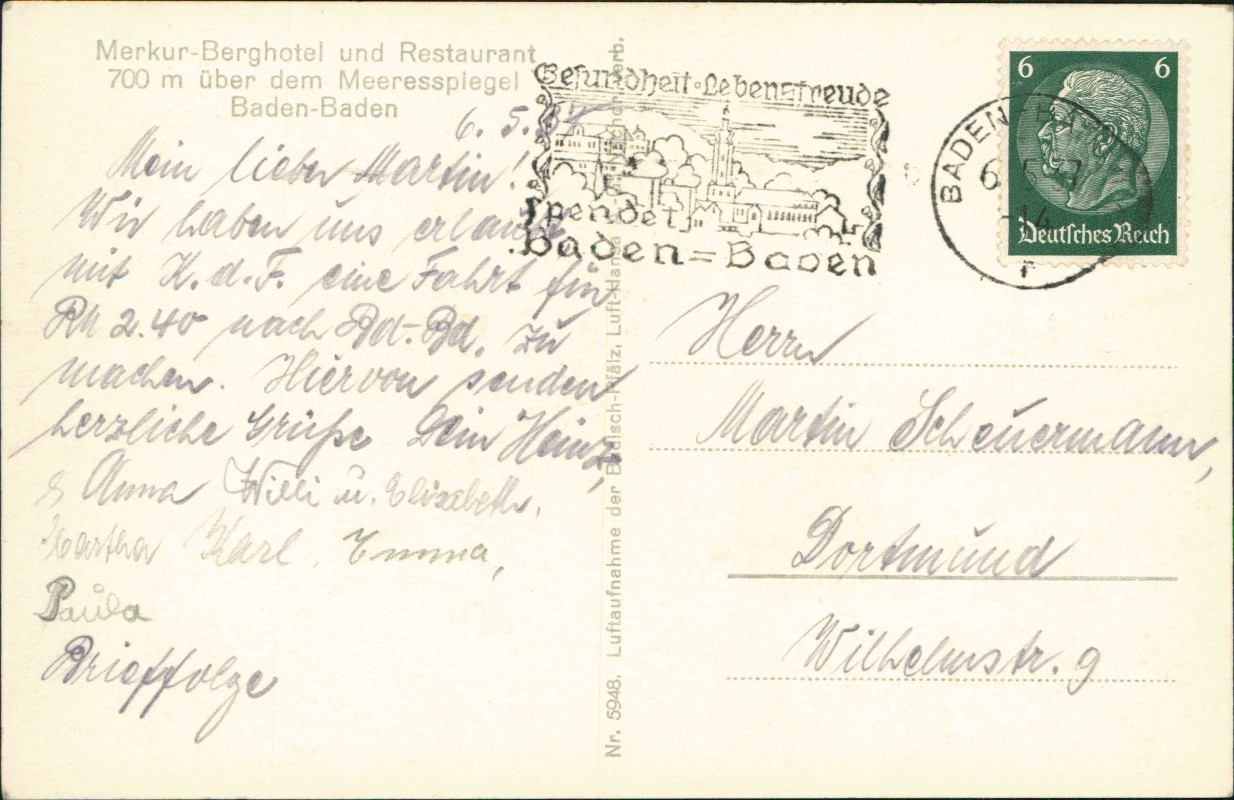 Merkur-Berghotel und Restaurant
700 m über dem Meeresspiegel
Baden-Baden
6. 5. 37
Mein lieber Martin!
Wir haben uns erlaubt
mit K.d.F. eine Fahrt für
RM 2.40 nach Bd.-Bd. zu
machen. Hiervon senden
herzliche Grüße Dein Heinz,
Anna Willi u. Elisabeth,
Martha Karl, Emma,
Paula
Brieffolge
Nr. 5948. Luftaufnahme der Badisch-Pfälz. Luft-Hansa
Gesundheit · Lebensfreude
spendet
Baden=Baden
BADEN-BADEN
6 6
Deutsches Reich
Herrn
Martin Scheuermann,
Dortmund
Wilhelmstr. 9